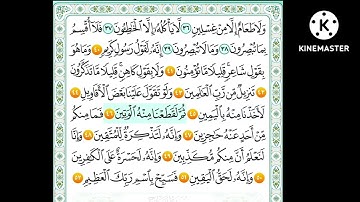 وَلَا طَعَامٌ إِلَّا مِنْ غِسْلِينٍ ٣٦ لَّا يَأْكُلُهُ إِلَّا الْخَاطِئُونَ ٣٧ فَلَا أُقْسِمُ
بِمَا تُبْصِرُونَ ٣٨ وَمَا لَا تُبْصِرُونَ ٣٩ إِنَّهُ لَقَوْلُ رَسُولٍ كَرِيمٍ ٤٠ وَمَا هُوَ
بِقَوْلِ شَاعِرٍ قَلِيلًا مَّا تُؤْمِنُونَ ٤١ وَلَا بِقَوْلِ كَاهِنٍ قَلِيلًا مَّا تَذَكَّرُونَ
٤٢ تَنزِيلٌ مِّن رَّبِّ الْعَالَمِينَ ٤٣ وَلَوْ تَقَوَّلَ عَلَيْنَا بَعْضَ الْأَقَاوِيلِ ٤٤
لَأَخَذْنَا مِنْهُ بِالْيَمِينِ ٤٥ ثُمَّ لَقَطَعْنَا مِنْهُ الْوَتِينَ ٤٦ فَمَا مِنكُم
مِّنْ أَحَدٍ عَنْهُ حَاجِزِينَ ٤٧ وَإِنَّهُ لَتَذْكِرَةٌ لِّلْمُتَّقِينَ ٤٨ وَإِنَّا
لَنَعْلَمُ أَنَّ مِنكُم مُّكَذِّبِينَ ٤٩ وَإِنَّهُ لَحَسْرَةٌ عَلَى الْكَافِرِينَ
٥٠ وَإِنَّهُ لَحَقُّ الْيَقِينِ ٥١ فَسَبِّحْ بِاسْمِ رَبِّكَ الْعَظِيمِ ٥٢
KINEMASTER